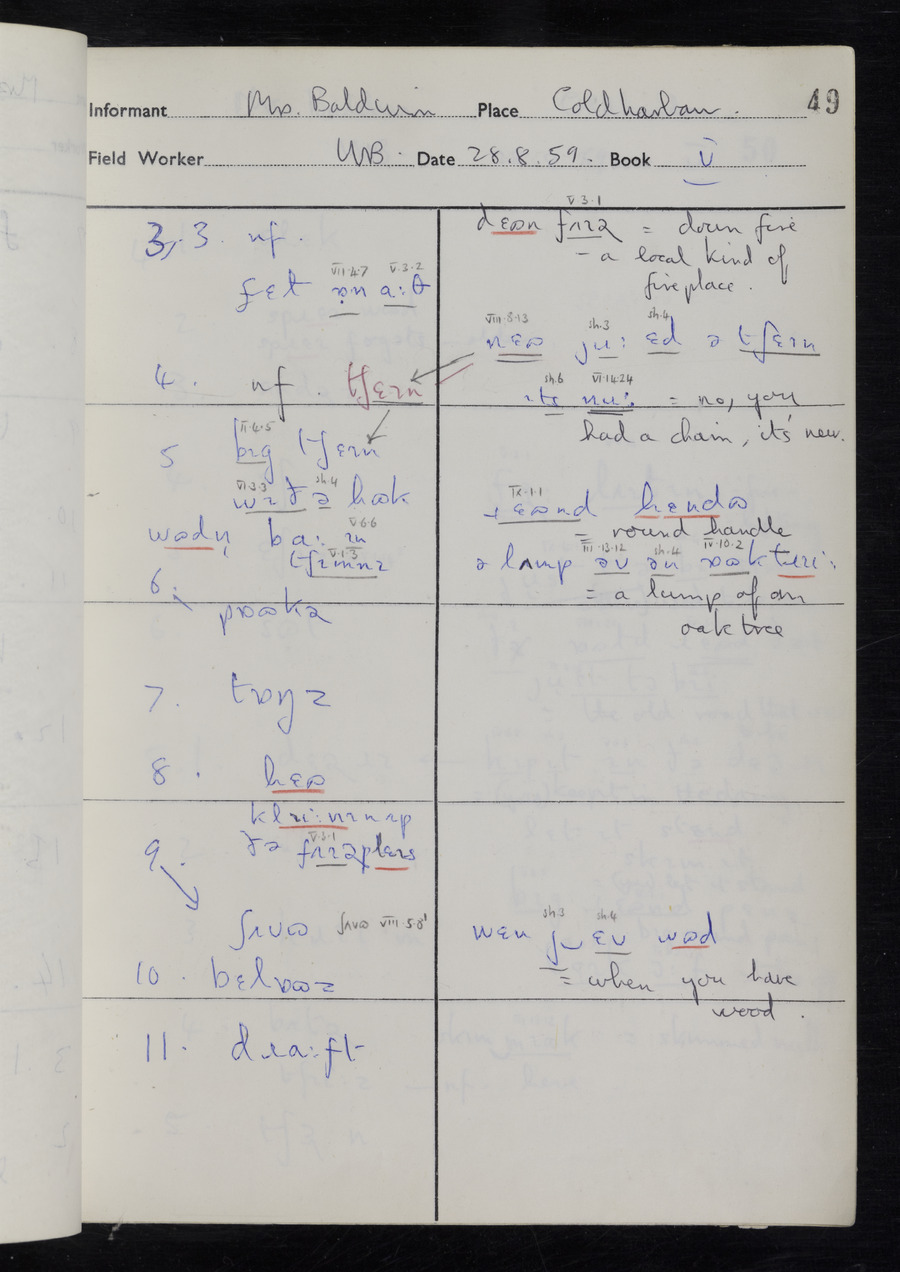 Informant Mrs. Baldwin Place Coldharbour. 49
Field Worker WB. Date 28.8.59. Book V
3,.3. nf.
fɛt ɒn a:θ
VII.4.7 V.3.2
4. nf. tʃɛɪn
5 bɪg tʃɛɪn
II.4.5
wɪð ə hʊk
VI.3.3 sh.4
ba: ɪn
V.6.6
tʃɪmnɪ
V.1.3
6.
7. tɒŋz
8.
9.
ðə
V.3.1
ʃʌvʊ ʃʌvʊ VIII.5.8
10. bɛlʊəz
11. dɹa:ft
V.3.1
= down fire
- a local kind of
fireplace.
VIII.8.13 sh.3 sh.4
nɛʊ ju: ɛd ə tʃɛɪn
sh.6 VI.14.24
ɪts nu: = no, you
had a chain, it's new.
IX.1.1
ɹɛʊnd hɛndʊ
= round handle
III.13.12 sh.4 IV.10.2
ə lʌmp əv ən
= a lump of an
oak tree
sh.3 sh.4
wɛn ju ɛv wʊd
= when you have
wood.